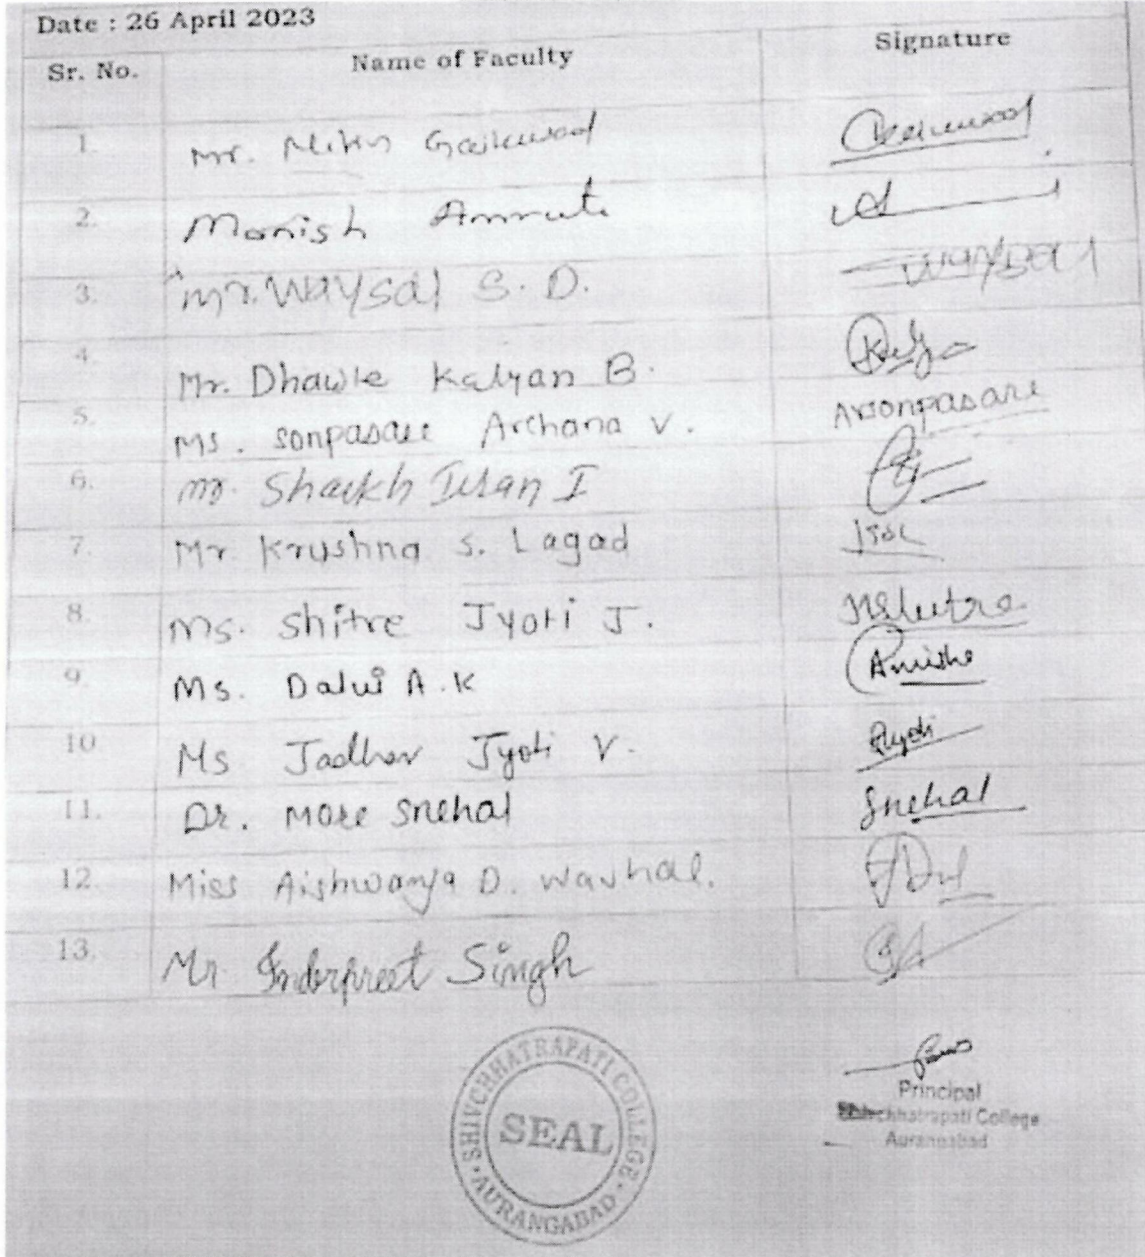 Date : 26 April 2023
Sr. No. Name of Faculty Signature
1. Mr. Nitin Gaikwad
2. Manish Ammute
3. Mr. Waysal S. D. Waysal
4. Mr. Dhawle Kalyan B.
5. Ms. Sonpasare Archana V. Avsonpasare
6. Mr. Shaikh I
7. Mr. Krushna S. Lagad
8. Ms. Shitre Jyoti J.
9. Ms. Dalvi A.K
10. Ms Jadhav Jyoti V. Jyoti
11. Dr. More Snehal Snehal
12. Miss Aishwarya D. Wavhal.
13. Mr. Inderpreet Singh
SHIVCHHATRAPATI COLLEGE
SEAL
AURANGABAD
Principal
Shivchhatrapati College
Aurangabad